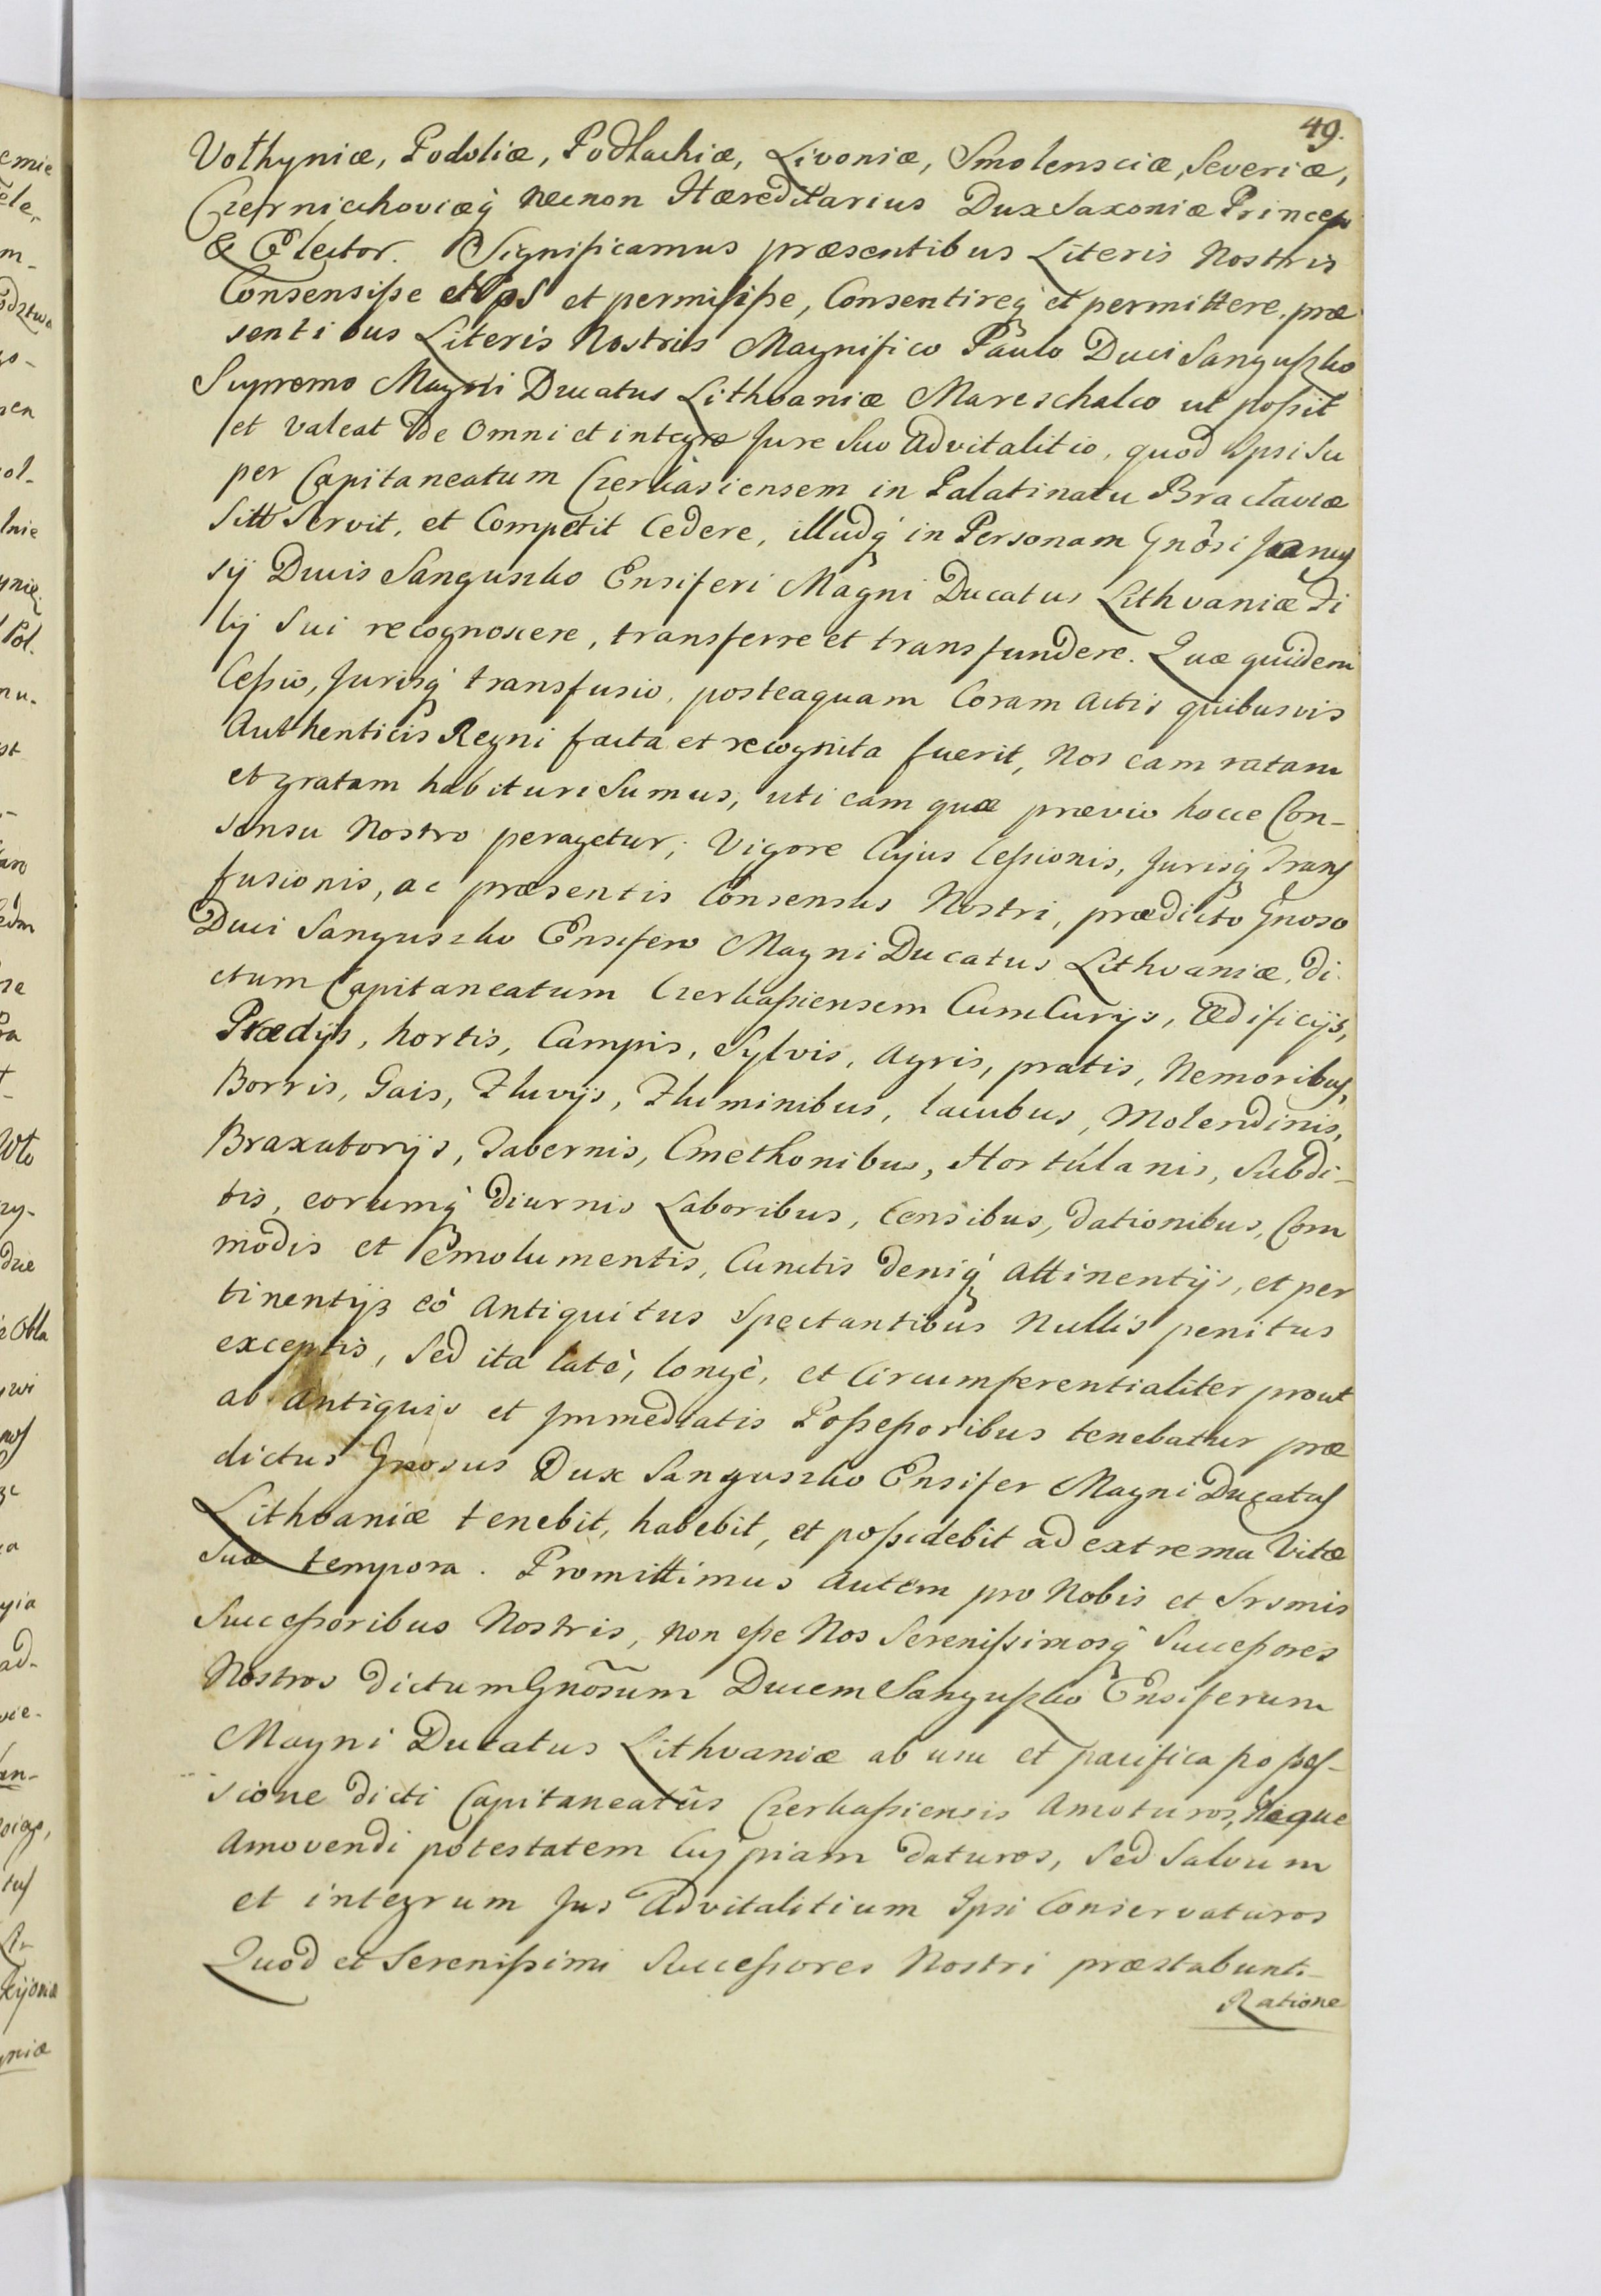 49.
Volhyniæ, Podoliæ, Podlachiæ, Livoniæ, Smolensciæ, Severiæ,
Czerniechoviæq́ necnon Hæreditarius Dux Saxoniæ Princeps
& Elector. Significamus præsentibus Literis Nostris
Consensisse et permisisse, Consentireq́ et permittere præ
sentibus Literis Nostris Magnifico Paulo Duci Sanguszko
Supremo Magni Ducatus Lithvaniæ Mareschalco ut possit
et valeat de Omni et integro Jure Suo Advitalitio, quod Ipsi Su
per Capitaneatum Czerkasiensem in Palatinatu Braclaviæ
Sitt Servit, et Competit Cedere, illudq́ in Personam Gnôsi Janus
sij Ducis Sanguszko Ensiferi Magni Ducatus Lithvaniæ Fi
lij Sui recognoscere, transferre et transfundere. Quæ quidem
Cessio, Jurisq́ transfusio, posteaquam Coram Actis quibusvis
Authenticis Regni facta et recognita fuerit, Nos eam ratam
et gratam habituri Sumus, uti eam quæ prævio hocce Con-
sensu Nostro peragetur; Vigore Cujus Cessionis, Jurisq́ Trans
fusionis, ac præsentis Consensus Nostri, prædicto Gnoso
Duci Sanguszko Ensifero Magni Ducatus Lithvaniæ, di
ctum Capitaneatum Czerkassiensem Cum Curijs, Ædificijs,
Prædijs, hortis, Campis, Sylvis, Agris, pratis, Nemoribus,
Borris, Gais, Fluvijs, Fluminibus, lacubus, Molendinis,
Braxatorijs, Tabernis, Cmethonibus, Hortulanis, Subdi-
tis, eorumq́ diurnis Laboribus, Censibus, dationibus, Com
modis et Emolumentis, Cunctis deniq́ attinentijs, et per
tinentijs eò Antiquitus Spectantibus Nullis penitus
exceptis, Sed ita latè, longè, et Circumferentialiter prout
ab Antiquis et Immediatis Possessoribus tenebatur præ
dictus Gnosus Dux Sanguszko Ensifer Magni Ducatus
Lithvaniæ tenebit, habebit, et possidebit ad extrema Vitæ
Suæ tempora. Promittimus Autem pro Nobis et Srsmis
Successoribus Nostris, non esse Nos Serenissimosq́ Successores
Nostros dictum Gnôsum Ducem Sanguszko Ensiferum
Magni Ducatus Lithvaniæ ab usu et pacifica posses-
sione dicti Capitaneatûs Czerkassiensis Amoturos, Neque
Amovendi potestatem Cuj piam daturos, Sed Salvum
et integrum Jus Advitalitium Ipsi Conservaturos
Quod et Serenissimi Successores Nostri præstabunt.
Ratione